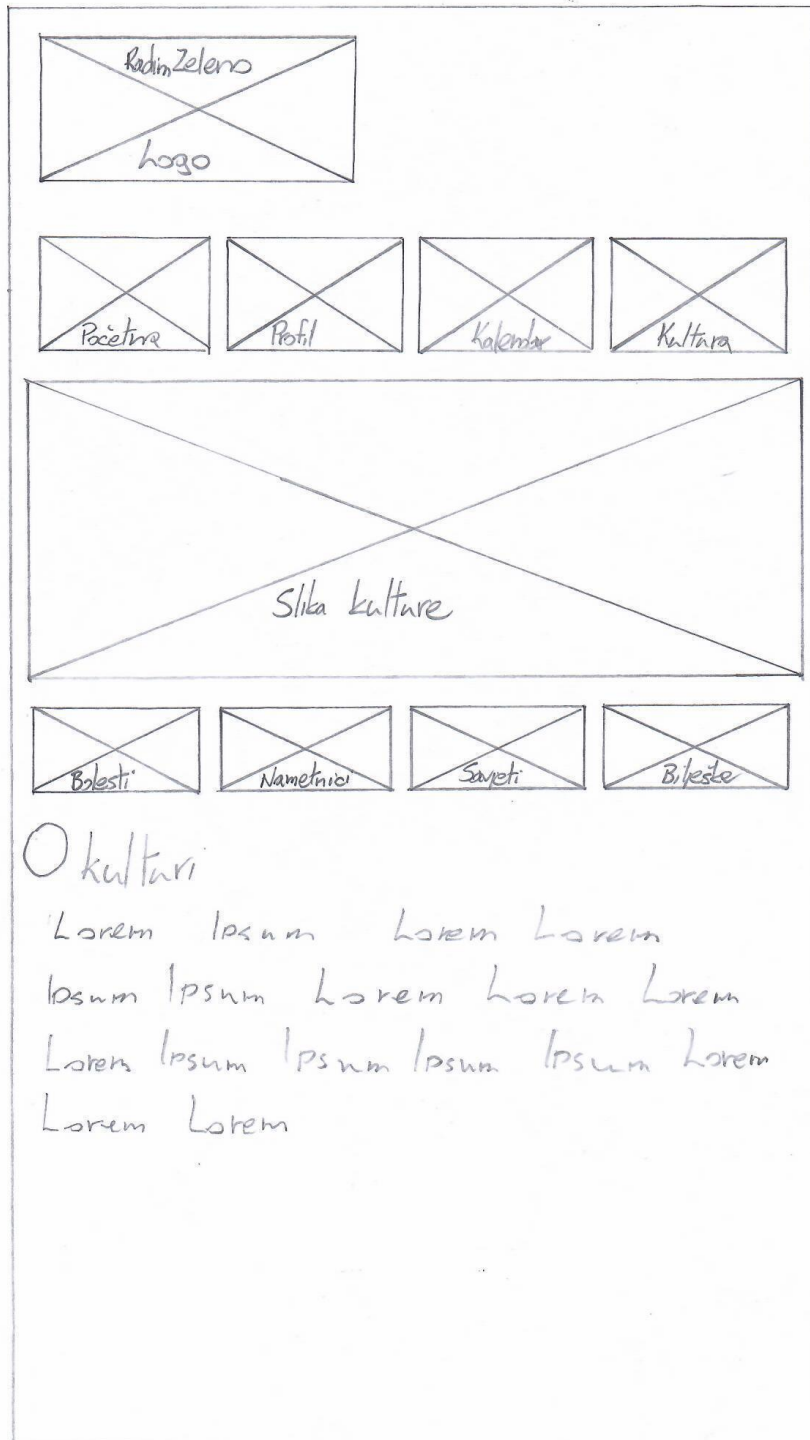 RadimZeleno
Logo
Početna Profil Kalendar Kultura
Slika kulture
Bolesti Nametnici Savjeti Bilješke
O kulturi
Lorem Ipsum Lorem Lorem
Ipsum Ipsum Lorem Lorem Lorem
Lorem Ipsum Ipsum Ipsum Ipsum Lorem
Lorem Lorem